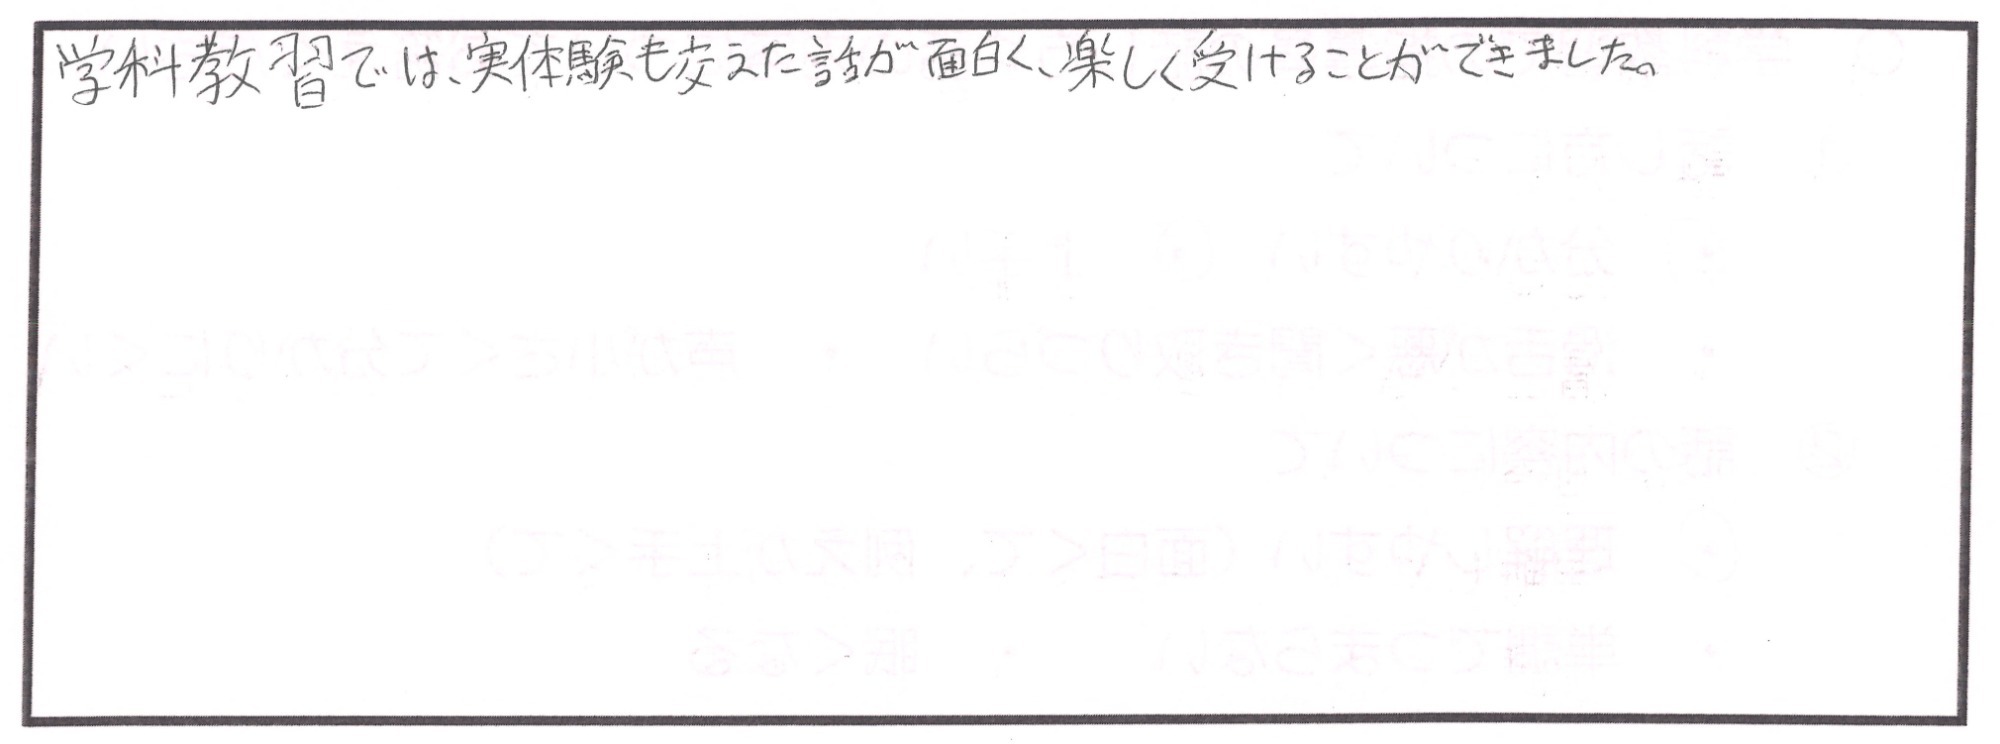 学科教習では、実体験も交えた話が面白く、楽しく受けることができました。